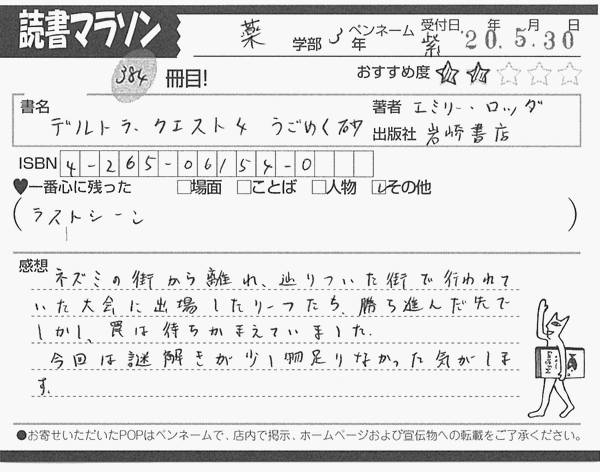 読書マラソン
薬 学部 3年 ペンネーム 紫 受付日 '20年 5月 30日
384 冊目!
おすすめ度 ★★☆☆☆
書名 デルトラ・クエスト4 うごめく砂
著者 エミリー・ロッダ
出版社 岩崎書店
ISBN 4-265-06154-0
♥一番心に残った □場面 □ことば □人物 ☑その他
(ラストシーン)
感想
ネズミの街から離れ、辿りついた街で行われて
いた大会に出場したリーフたち、勝ち進んだ先で
しかし、罠は待ちかまえていました。
今回は謎解きが少し物足りなかった気がしま
す。
●お寄せいただいたPOPはペンネームで、店内で掲示、ホームページおよび宣伝物への転載をご了承ください。